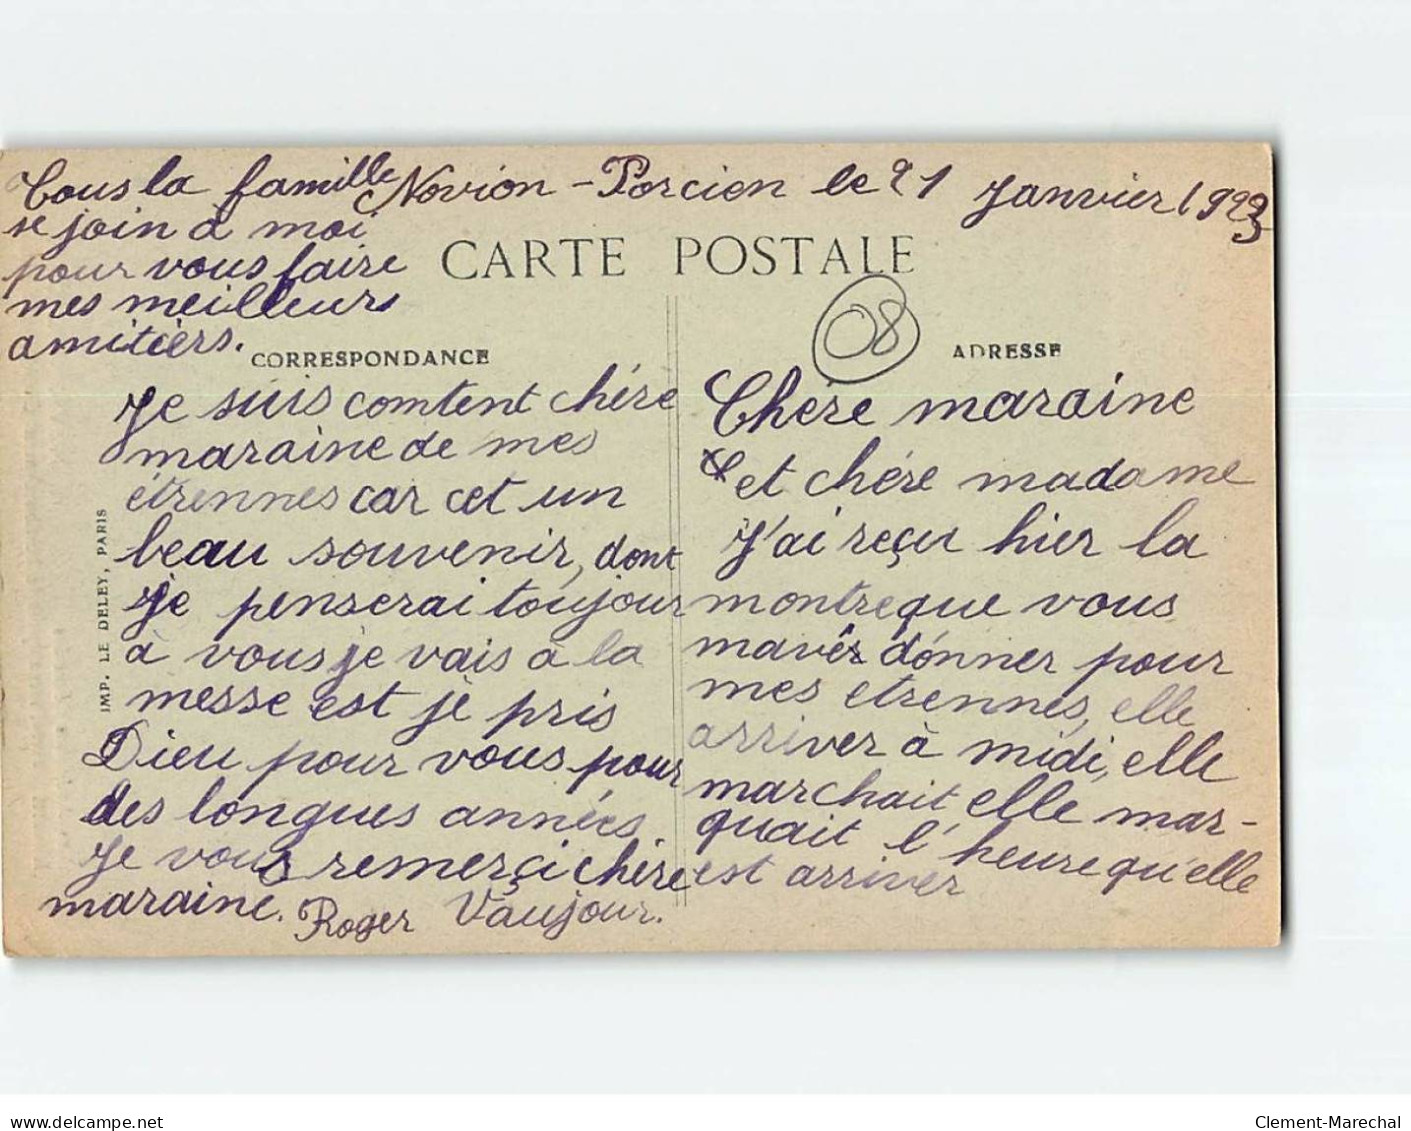 Novion-Porcien le 21 Janvier 1923
CARTE POSTALE
08
ADRESSE
Chère maraine
et chère madame
J'ai reçu hier la
montre que vous
mavès donner pour
mes etrennes, elle
arriver à midi, elle
marchait elle mar-
quait l'heure qu'elle
est arriver
CORRESPONDANCE
Je suis comtent chère
maraine de mes
étrennes car cet un
beau souvenir, dont
je penserai toujour
à vous je vais à la
messe est je pris
Dieu pour vous pour
des longues années.
Je vous remerçi chère
maraine. Roger Vaujour.
Tous la famille
se join à moi
pour vous faire
mes meilleurs
amitiers.
IMP. LE DELEY, PARIS
delcampe.net
Clement-Marechal